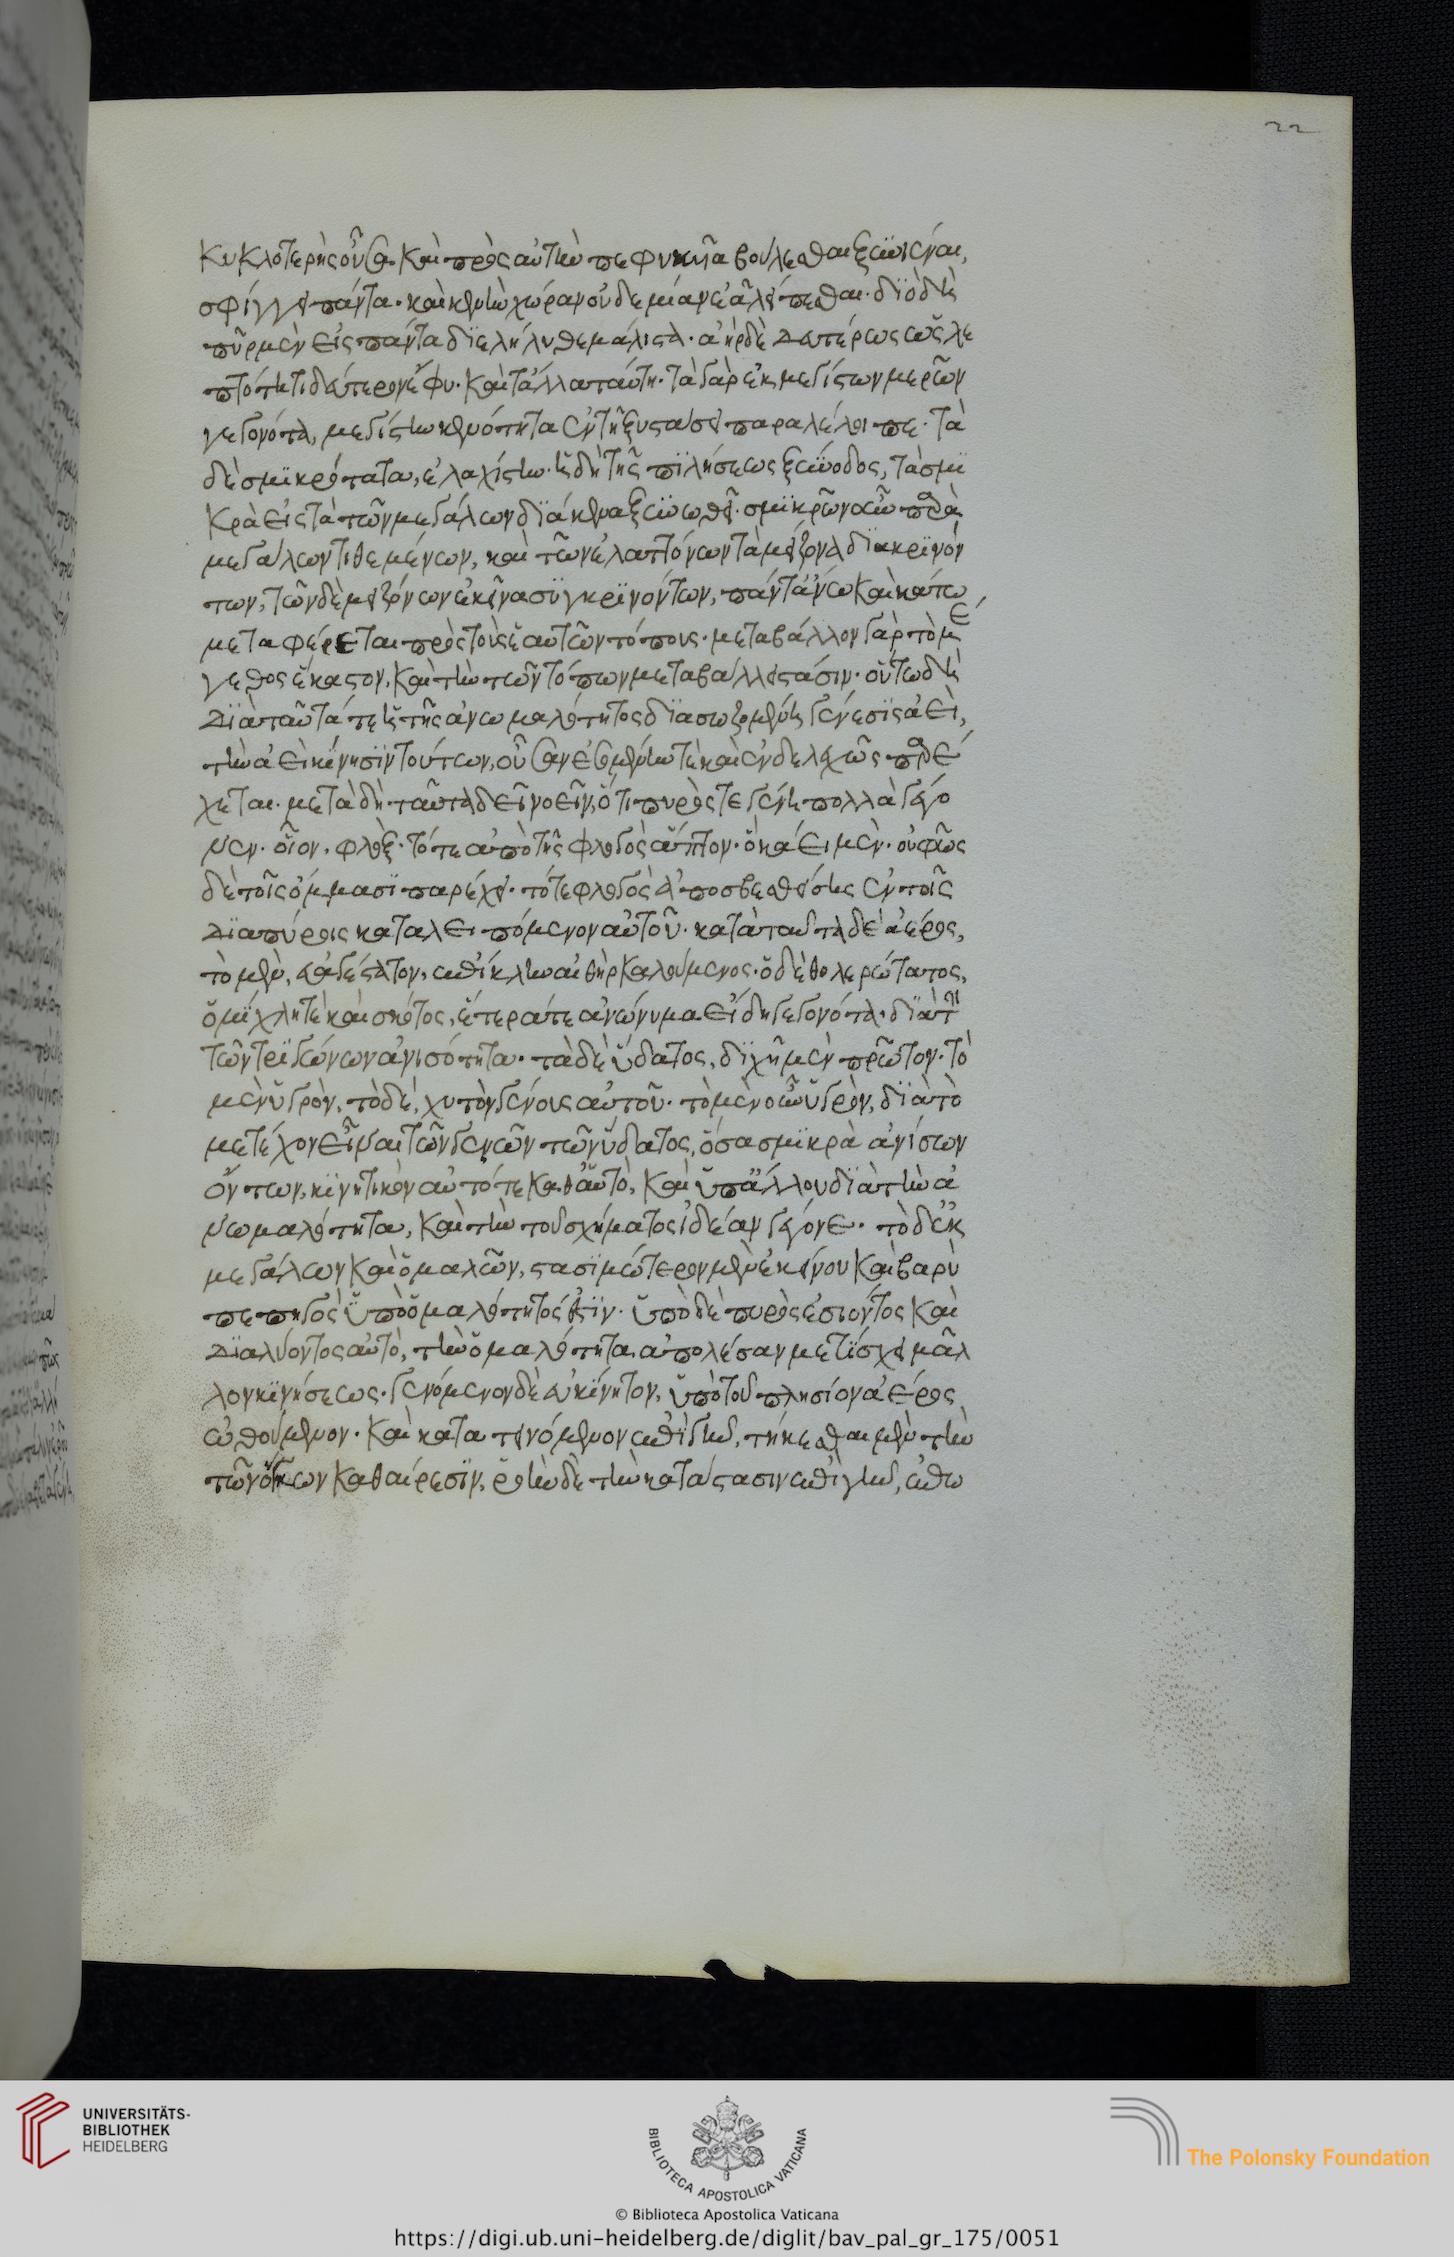 κυκλοτερὴς οὖσα. καὶ πρὸς αὐτὴν πεφυκυῖα βούλεσθαι ξυνιέναι,
σφίγγει πάντα. καὶ κενὴν χώραν οὐδεμίαν ἐᾶ λείπεσθαι. διὸ δὴ
πῦρ μὲν εἰς πάντα διελήλυθε μάλιστα. ἀὴρ δὲ δευτέρως ὡς λε
πτότητι δεύτερον ἔφυ. καὶ τἄλλα ταύτη. τὰ γὰρ ἐκ μεγίστων μερῶν
γεγονότα, μεγίστην κενότητα ἐν τῆ ξυστάσει παραλέλοιπε. τὰ
δὲ σμϊκρότατα, ἐλαχίστην. ἡ δὴ τῆς πϊλήσεως ξύνοδος, τὰ σμϊ
κρὰ εἰς τὰ τῶν μεγάλων διάκενα ξυνωθεῖ. σμϊκρῶν οὖν παρὰ
μεγάλων τιθεμένων, καὶ τῶν ἐλαττόνων τὰ μείζονα διακρϊνόν
των, τῶν δὲ μειζόνων ἐκεῖνα συγκρϊνόντων, πάντ' ἄνω καὶ κάτω
μεταφέρεται πρὸς τοὺς ἑαυτῶν τόπους. μεταβάλλον γὰρ τὸ μέ
γεθος ἕκαστον, καὶ τὴν τῶν τόπων μεταβάλλει στάσιν. οὕτω δὴ
διὰ ταῦτά τε ἡ τῆς ἀνωμαλότητος διασωζομένη γένεσϊς ἀεὶ,
τὴν ἀεὶ κίνησϊν τούτων, οὖσαν ἐσομένην τὲ καὶ ἐνδελεχῶς παρέ
χεται. μετὰ δὴ ταῦτα δεῖ νοεῖν, ὅτι πυρὸς τε γένη πολλὰ γέγο
νεν. οἷον, φλὸξ. τό τε ἀπὸ τῆς φλογὸς ἄπτον. ὃ κάει μὲν οὔ, φῶς
δὲ τοῖς ὄμμασϊ παρέχει. τό τε φλογὸς ἀποσβεσθείσης ἐν τοῖς
διαπύροις καταλειπόμενον αὐτοῦ. κατὰ ταυτὰ δὲ ἀέρος,
τὸ μὲν, εὐαγέστατον, ἐπίκλην αἰθὴρ καλούμενος. ὁ δὲ θολερώτατος,
ὁμίχλη τὲ καὶ σκότος, ἕτερά τε ἀνώνυμα εἴδη γεγονότα. διὰ τὴν
τῶν τρϊγώνων ἀνισότητα. τὰ δὲ ὕδατος, διχῆ μὲν πρῶτον. τὸ
μὲν ὑγρὸν, τὸ δὲ, χυτὸν γένους αὐτοῦ. τὸ μὲν οὖν ὑγρὸν, διὰ τὸ
μετέχον εἶναι τῶν γενῶν τῶν ὕδατος, ὅσα σμϊκρὰ ἀνίσων
ὄντων, κϊνητικὸν αὐτό τε καθ' αὑτὸ, καὶ ὑπ' ἄλλου διὰ τὴν ἀ
νωμαλότητα, καὶ τὴν τοῦ σχήματος ἰδέαν γέγονε. τὸ δ' ἐκ
μεγάλων καὶ ὁμαλῶν, στασϊμώτερον μὲν ἐκείνου καὶ βαρὺ
πεπηγὸς ὑπὸ ὁμαλότητός ἐστϊν. ὑπὸ δὲ πυρὸς εἰσιόντος καὶ
διαλύοντος αὐτὸ, τὴν ὁμαλότητα ἀπολέσαν μετίσχει μᾶλ
λον κϊνήσεως. γενόμενον δὲ εὐκίνητον, ὑπὸ τοῦ πλησίον ἀέρος
ὠθούμενον. καὶ κατατεινόμενον ἐπὶ γῆν, τήκεσθαι μὲν τὴν
τῶν ὄγκων καθαίρεσϊν, ῥοὴν δὲ τὴν κατάστασιν ἐπὶ γῆν, ἐπω
UNIVERSITÄTS-
BIBLIOTHEK
HEIDELBERG
BIBLIOTECA APOSTOLICA VATICANA
© Biblioteca Apostolica Vaticana
The Polonsky Foundation
https://digi.ub.uni-heidelberg.de/diglit/bav_pal_gr_175/0051